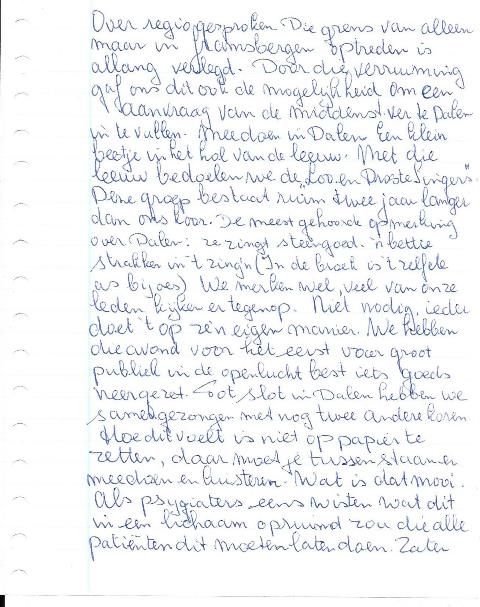 Over regio gesproken. Die grens van alleen
maar in Gramsbergen optreden is
allang verlegd. Door die verruiming
gaf ons dit ook de mogelijkheid om een
aanvraag van de middenst. ver. te Dalen
in te vullen. Meedoen in Dalen. Een klein
beetje in het hol van de leeuw. Met die
leeuw bedoelen we de "Loo en Drostesingers"
Deze groep bestaat ruim twee jaar langer
dan ons koor. De meest gehoorde opmerking
over Dalen: ze zingt steengoed. 'n bettie
strakker in 't zing'n (In de broek is 't zelfde
as bij oes) We merken wel, veel van onze
leden kijken er tegenop. Niet nodig, ieder
doet 't op z'n eigen manier. We hebben
die avond voor het eerst voor groot
publiek in de openlucht best iets goeds
neergezet. Tot slot in Dalen hebben we
samengezongen met nog twee andere koren
Hoe dit voelt is niet op papier te
zetten, daar moet je tussen staan en
meedoen en luisteren. Wat is dat mooi.
Als psygiaters eens wisten wat dit
in een lichaam opruimd zou die alle
patiënten dit moeten laten doen. Zater